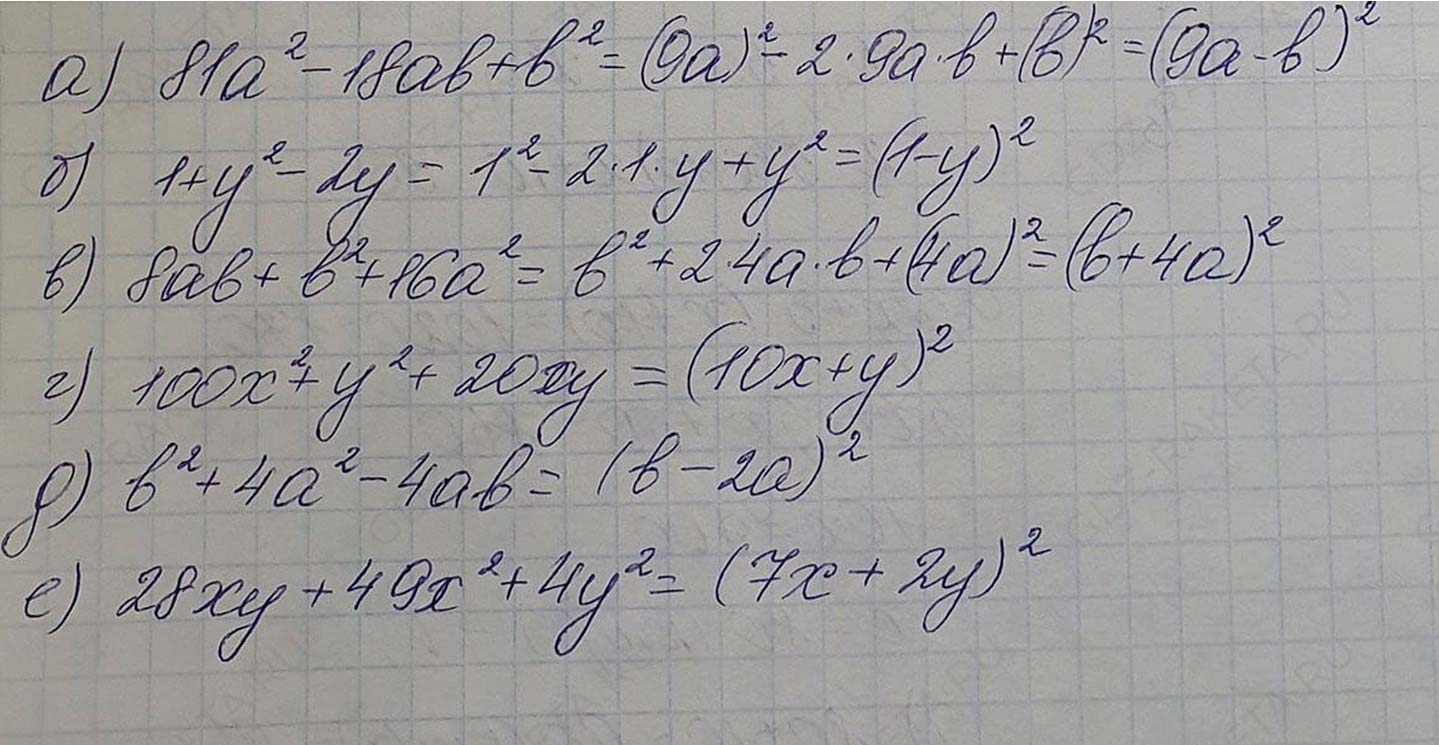 а) 81a² - 18ab + b² = (9a)² - 2·9a·b + (b)² = (9a - b)²
б) 1 + y² - 2y = 1² - 2·1·y + y² = (1 - y)²
в) 8ab + b² + 16a² = b² + 2·4a·b + (4a)² = (b + 4a)²
г) 100x² + y² + 20xy = (10x + y)²
д) b² + 4a² - 4ab = (b - 2a)²
е) 28xy + 49x² + 4y² = (7x + 2y)²